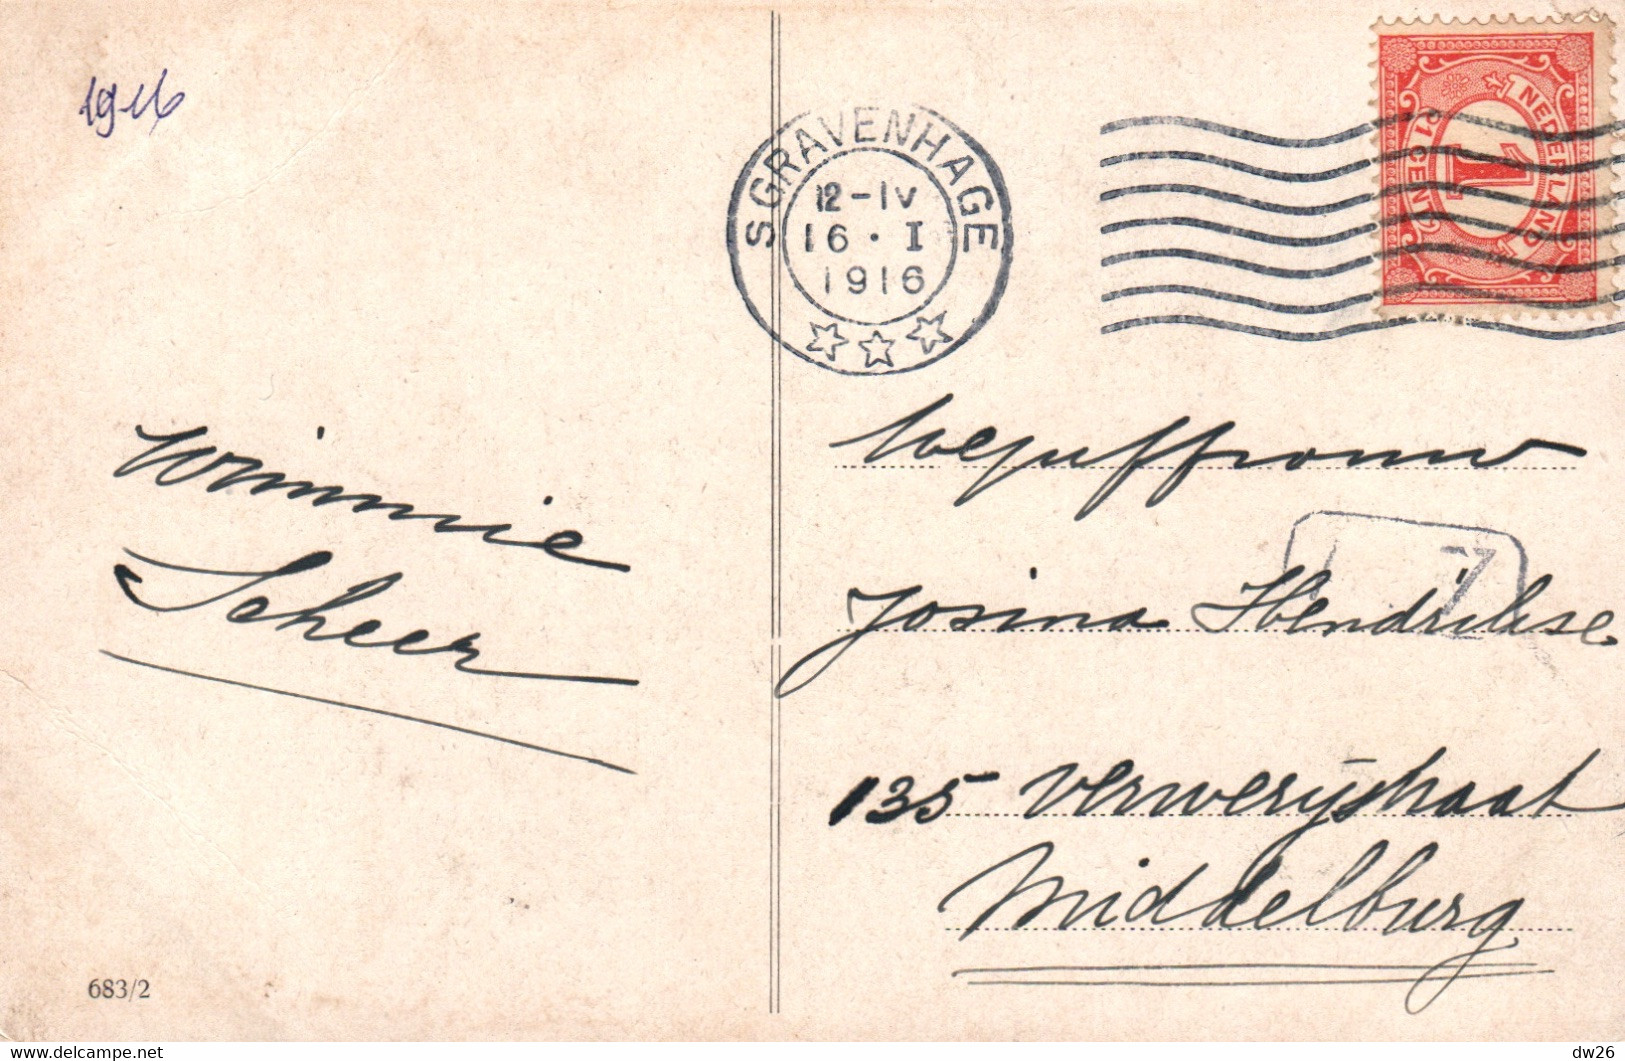 1916
S GRAVENHAGE
12-IV
16 · I
1916
NEDERLAND
1
1 CENT
Winnie
Scheer
Mejuffrouw
Josina Hendrikse
7
135 Verwerijstraat
Middelburg
683/2
www.delcampe.net
dw26